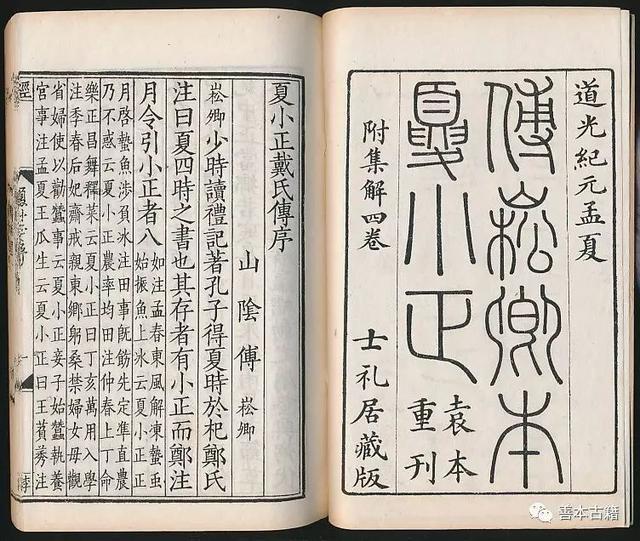 道光紀元孟夏
傅崧卿本
夏小正
附集解四卷
袁本
重刊
士礼居藏版
夏小正戴氏傳序
山陰傅崧卿
崧卿少時讀禮記著孔子得夏時於杞鄭氏
注曰夏四時之書也其存者有小正而鄭注
月令引小正者八如注孟春東風解凍蟄蟲
始振魚上冰云夏小正正
月啓蟄魚涉負冰注田事既飭先定準直農
乃不惑云夏小正農率均田注仲春上丁命
樂正習舞釋菜云夏小正曰丁亥萬用入學
注季春后妃齋戒親東鄉躬桑禁婦女毋觀
省婦使以勸蠶事云夏小正妾子始蠶執養
宮事注孟夏王瓜生云夏小正曰王萯莠注
善本古籍